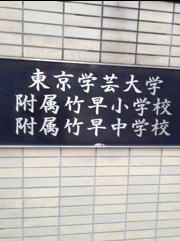 東京学芸大学
附属竹早小学校
附属竹早中学校